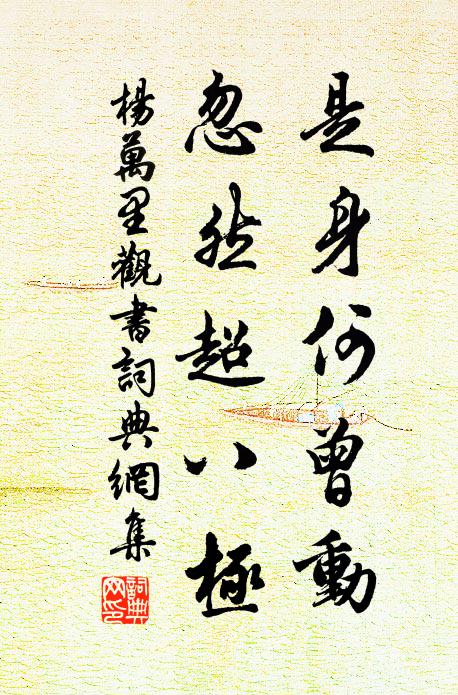 是身何曾動
忽然超八極
楊萬里觀書詞典網集
詞典
网印